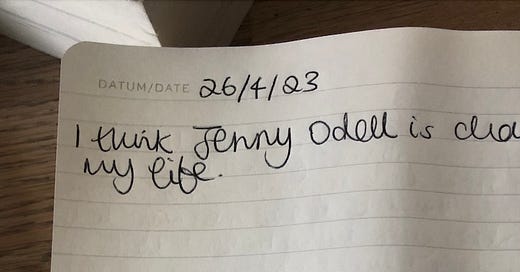 DATUM/DATE 26/4/23
I think Jenny Odell is cha
my life.